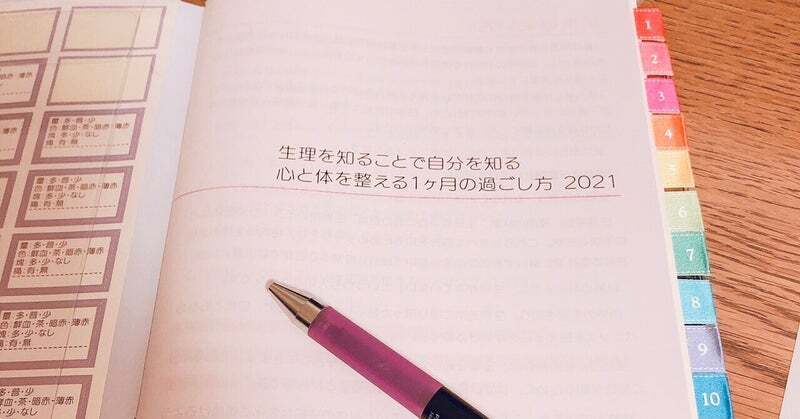 生理を知ることで自分を知る
心と体を整える1ヶ月の過ごし方 2021
1
2
3
4
5
6
7
8
9
10
薄赤
量:多・普・少
色:鮮血・茶・暗赤・薄赤
塊:多・少・なし
痛:有・無
量:多・普・少
色:鮮血・茶・暗赤・薄赤
塊:多・少・なし
痛:有・無
量:多・普・少
色:鮮血・茶・暗赤・薄赤
塊:多・少・なし
痛:有・無
量:多・普・少
色:鮮血・茶・暗赤・薄赤
塊:多・少・なし
痛:有・無
量:多・普・少